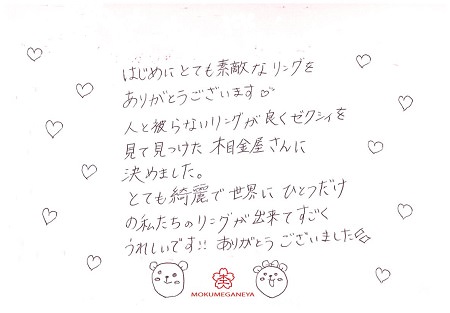 はじめにとても素敵なリングを
ありがとうございます♡
人と被らないリングが良くゼクシィを
見て見つけた杢目金屋さんに
決めました。
とても綺麗で世界にひとつだけ
の私たちのリングが出来てすごく
うれしいです!! ありがとうございました
MOKUMEGANEYA